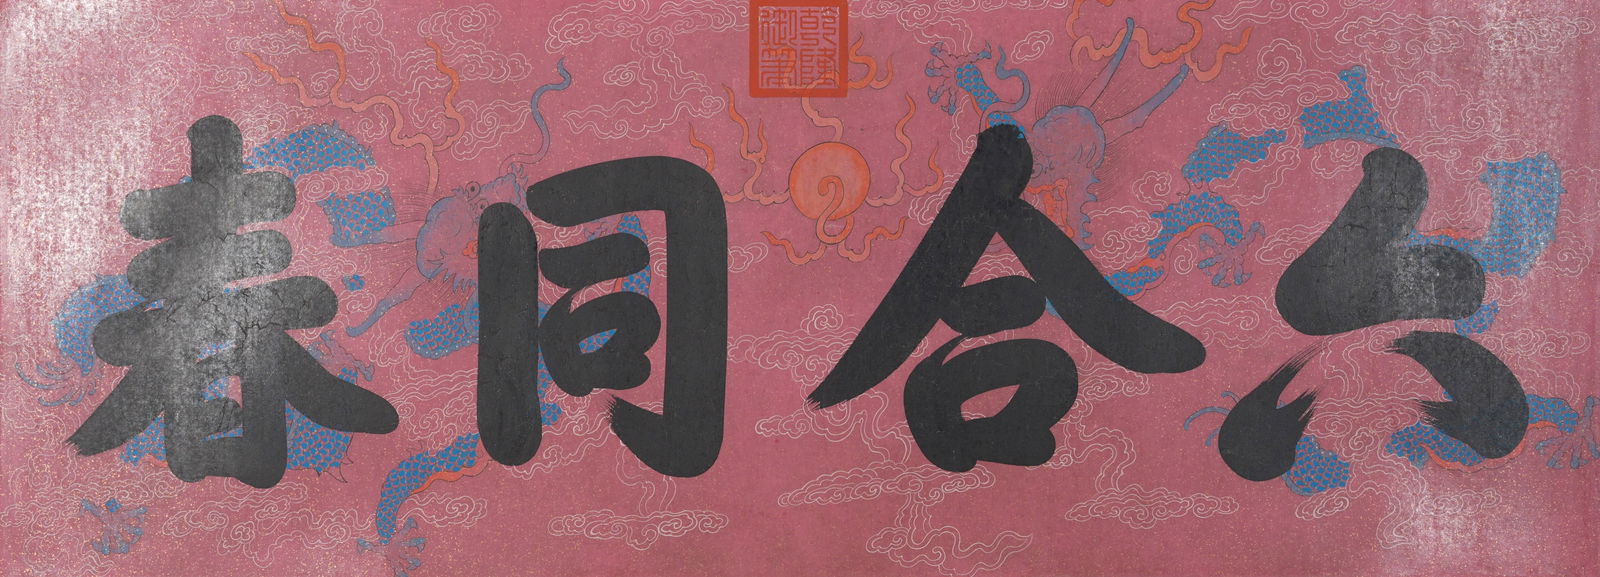 乾隆
御筆
六合同春